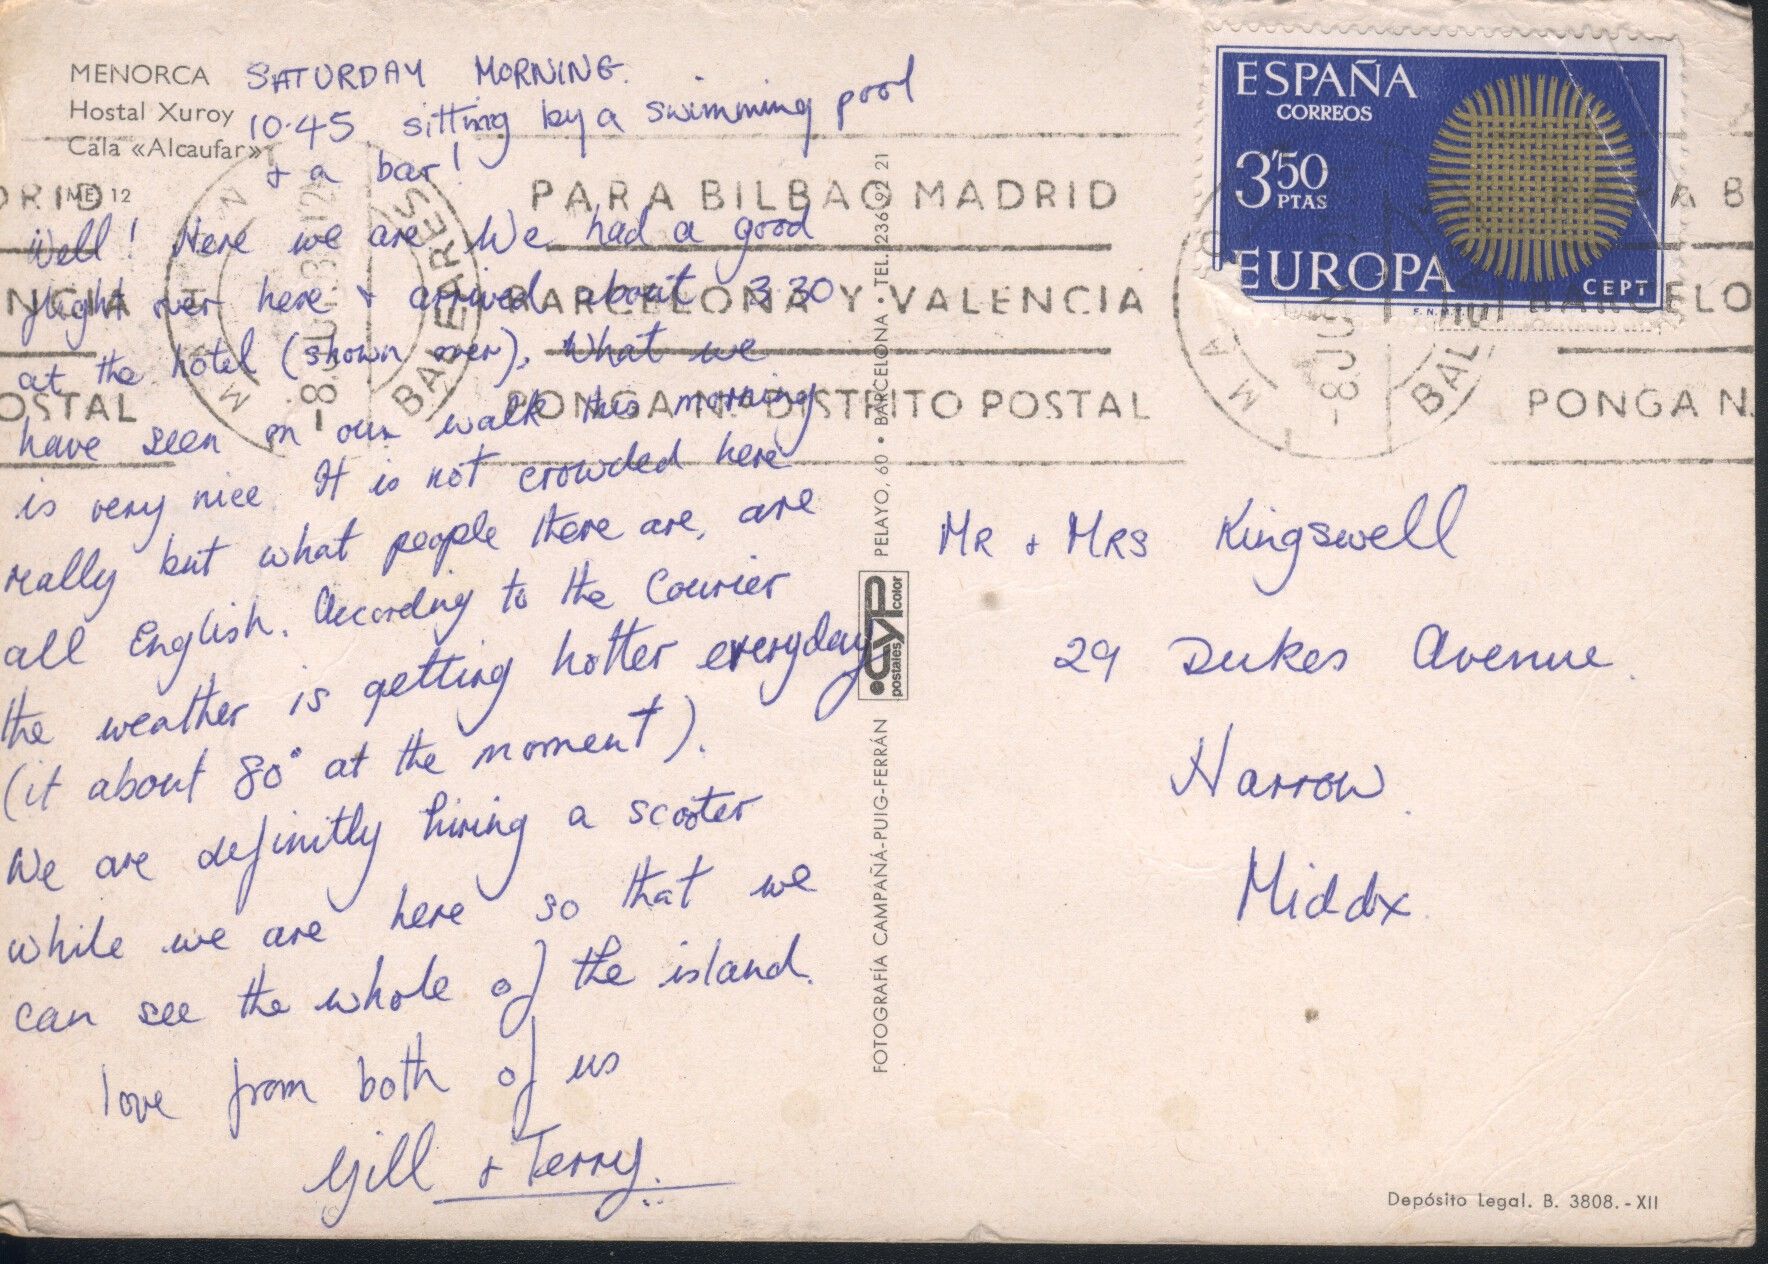 MENORCA
Hostal Xuroy
Cala «Alcaufar»
ME 12
SATURDAY MORNING.
10.45 sitting by a swimming pool
+ a bar!
Well! Here we are. We had a good
flight over here + arrived about 3.30
at the hotel (shown over). What we
have seen on our walk this morning
is very nice. It is not crowded here
really but what people there are, are
all English. According to the Courier
the weather is getting hotter everyday
(it about 80° at the moment).
We are definitly hiring a scooter
while we are here so that we
can see the whole of the island.
love from both of us
Gill + Terry.
ESPAÑA
CORREOS
3'50
PTAS
EUROPA
CEPT
PARA BILBAO MADRID
BARCELONA Y VALENCIA
PONGA N. DISTRITO POSTAL
BALEARES
-8 JUN
DRID
NCIA
OSTAL
PONGA N.
FOTOGRAFÍA CAMPAÑÁ-PUIG-FERRÁN
CYP
postales color
PELAYO, 60 • BARCELONA • TEL. 236 92 21
Mr + Mrs Kingswell
29 Dukes Avenue.
Harrow.
Middx.
Depósito Legal. B. 3808.-XII